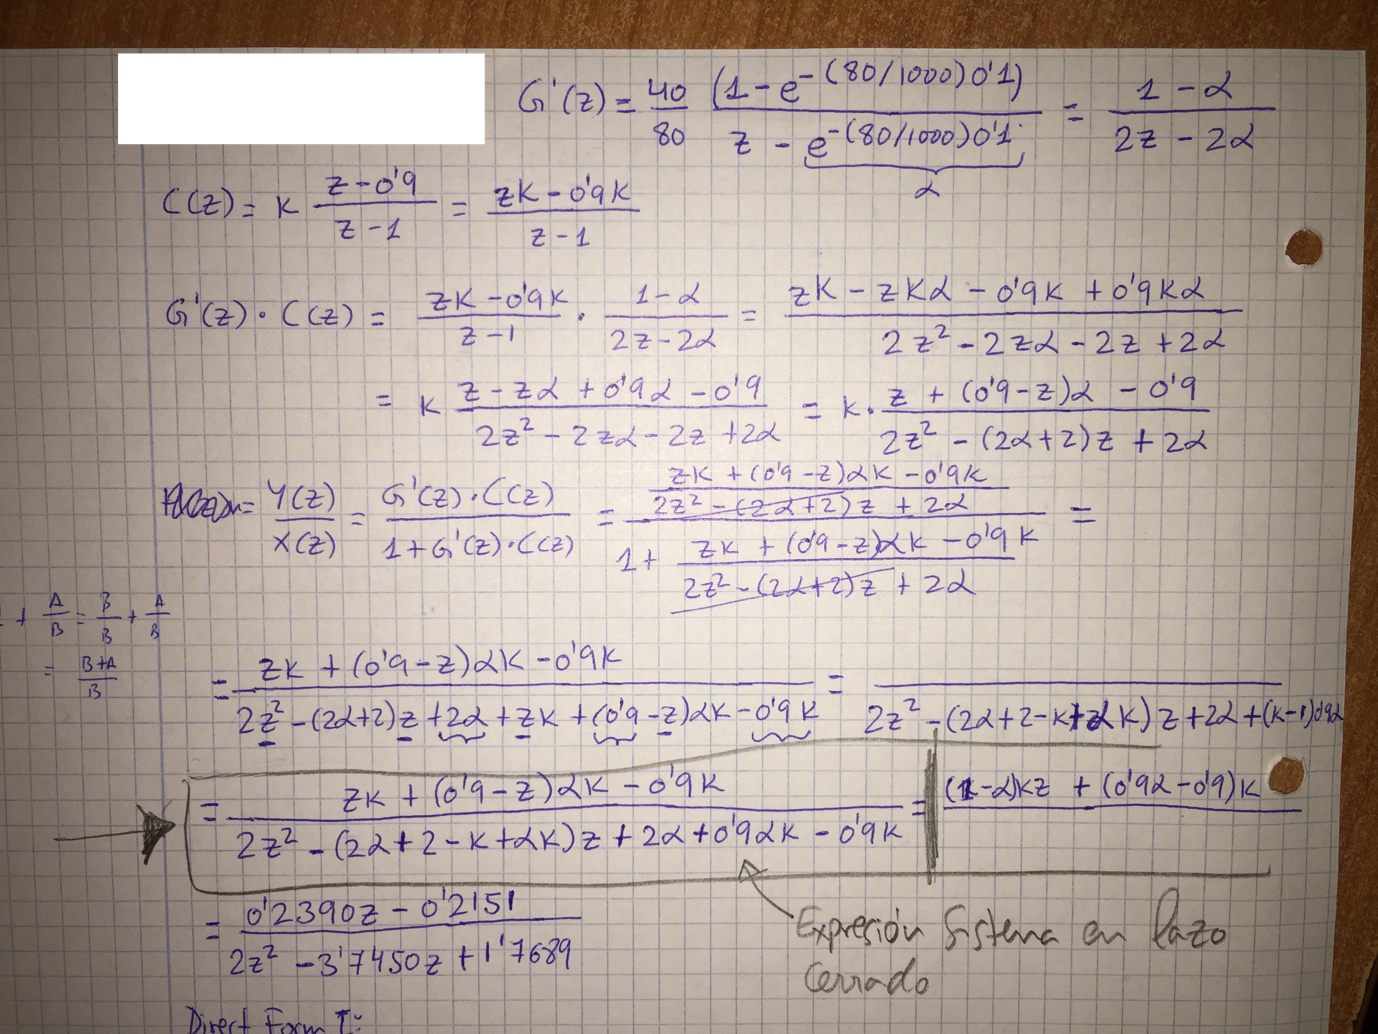 G'(z) = 40/80 (1 - e^-(80/1000)0'1) / (z - e^-(80/1000)0'1) = (1 - α) / (2z - 2α)
α
C(z) = K (z - 0'9) / (z - 1) = (zK - 0'9K) / (z - 1)
G'(z) · C(z) = (zK - 0'9K) / (z - 1) · (1 - α) / (2z - 2α) = (zK - zKα - 0'9K + 0'9Kα) / (2z² - 2zα - 2z + 2α)
= K (z - zα + 0'9α - 0'9) / (2z² - 2zα - 2z + 2α) = K · (z + (0'9 - z)α - 0'9) / (2z² - (2α+2)z + 2α)
= Y(z) / X(z) = G'(z) · C(z) / (1 + G'(z) · C(z)) = ((zK + (0'9 - z)αK - 0'9K) / (2z² - (2α+2)z + 2α)) / (1 + (zK + (0'9 - z)αK - 0'9K) / (2z² - (2α+2)z + 2α)) =
+ A/B = B/B + A/B
= (B+A)/B
= (zK + (0'9 - z)αK - 0'9K) / (2z² - (2α+2)z + 2α + zK + (0'9 - z)αK - 0'9K) = / (2z² - (2α + 2 - K + αK)z + 2α + (K-1)0'9α
= (zK + (0'9 - z)αK - 0'9K) / (2z² - (2α + 2 - K + αK)z + 2α + 0'9αK - 0'9K) = (1 - α)Kz + (0'9α - 0'9)K
= (0'2390z - 0'2151) / (2z² - 3'7450z + 1'7689)
Expresión Sistema en lazo
Cerrado
Direct Form I: